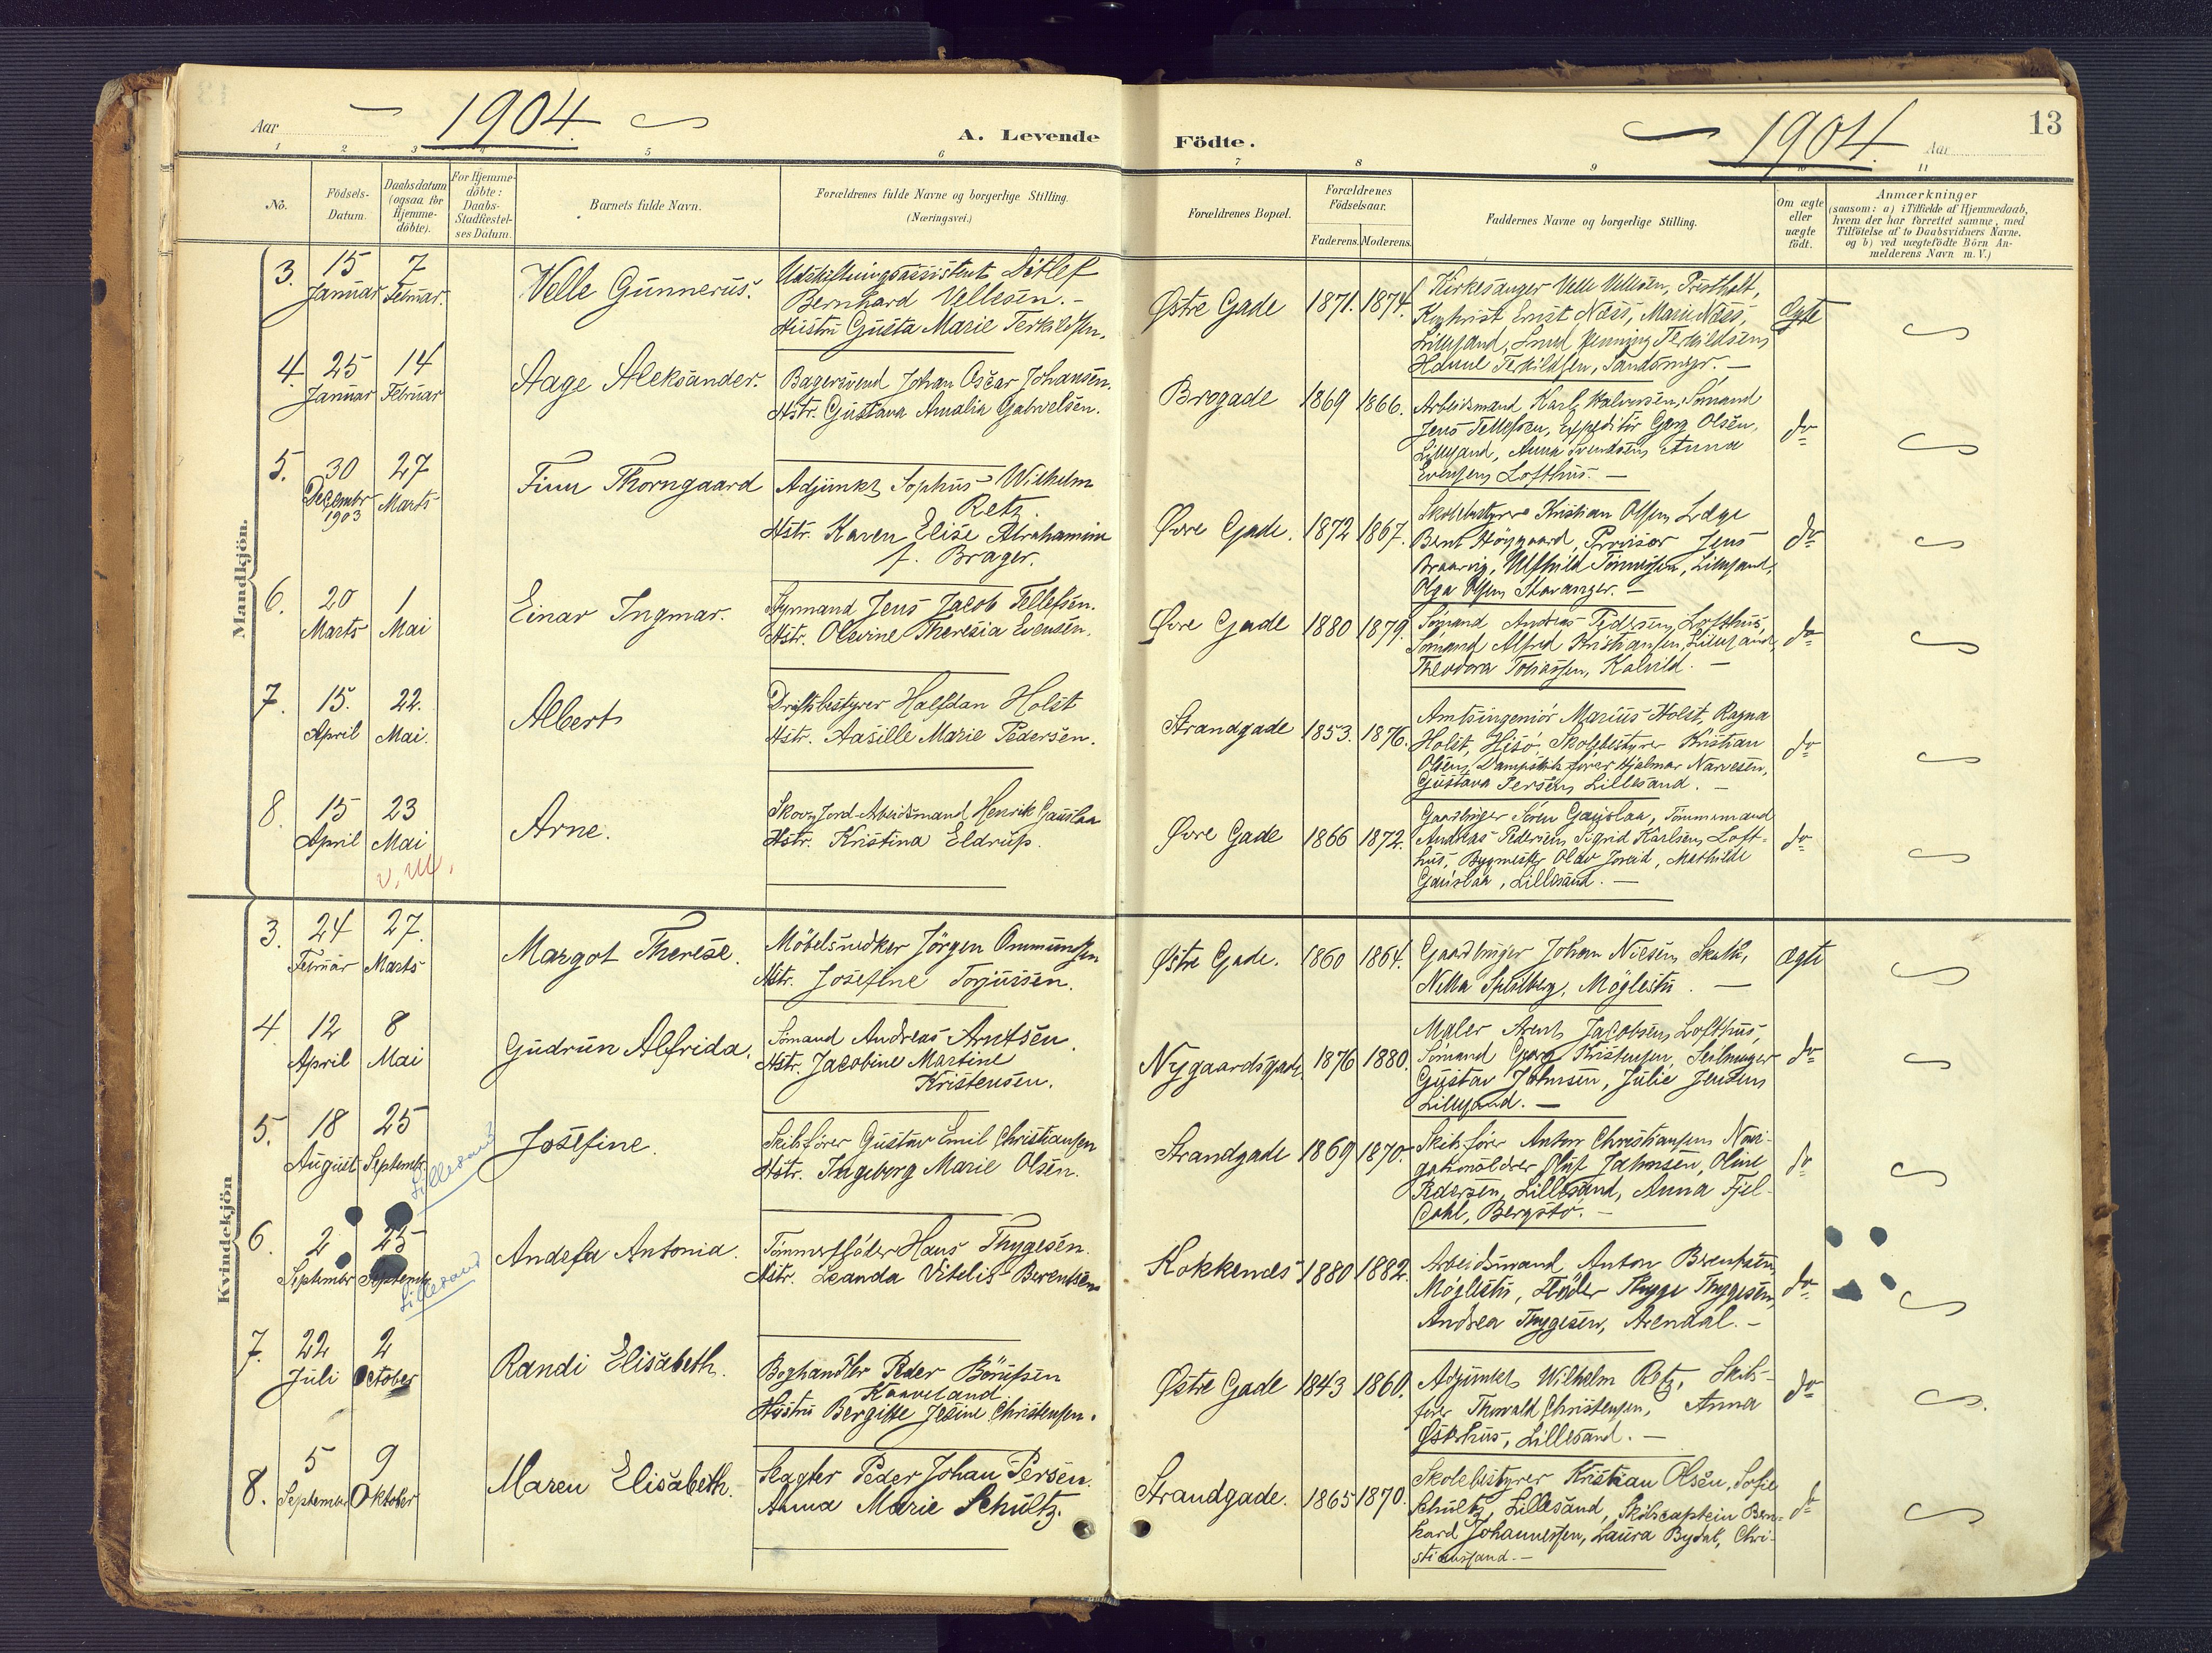 Aar 1904. A. Levende Födte. 1904. Aar 13
1 2 3 4 5 6 7 8 9 10 11
No.
Födsels-
Datum.
Daabsdatum
(ogsaa for
Hjemme-
döbte).
For Hjemme-
döbte:
Daabs-
Stadfæstel-
ses Datum.
Barnets fulde Navn.
Forældrenes fulde Navne og borgerlige Stilling.
(Næringsvei.)
Forældrenes Bopæl.
Forældrenes
Födselsaar.
Faderens. Moderens.
Faddernes Navne og borgerlige Stilling.
Om ægte
eller
uægte
födt.
Anmærkninger
(saasom: a) i Tilfælde af Hjemmedaab,
hvem der har forrettet samme, med
Tilföielse af to Daabsvidners Navne.
og b) ved uægtefödte Börn An-
melderens Navn m. V.)
Mandkjön.
3. 15 Januar 7 Februar.
Velle Gunnerus.
Udskiftningsassistent Ditlef
Bernhard Vellesen. -
Hustru Gusta Marie Terkildsen.
Østre Gade 1871. 1874.
Kirkesanger Velle Vellesen,
Ernst Næss, Marie Næss,
Lillesand, Henning Terkildsen,
Terkildsen,
Ægte
4. 25 Januar 14 Februar
Aage Aleksander.
Bagersvend Johan Oscar Johansen.
Hstr. Gustava Amalia Gabrielsen.
Brogade 1869 1866.
Arbeidsmand Karl Halvorsen, Sömand
Jens Tellefsen, Expeditör Georg Olsen,
Lillesand, Anna Svendsen, Anna
Evensen, Lofthus. -
do
5. 30 Decembr 1903 27 Marts
Finn Thorngaard
Adjunkt Sophus Wilhelm
Retz.
Hstr. Karen Elise Abrahamine
f. Brager.
Øvre Gade. 1872 1867.
Skolebestyrer Kristian Olsen, Læge
Bent Höygaard, Provisor Jens
Braarvig, Ulfhild Tönnessen, Lillesand,
Olga Olsen, Stavanger. -
do
6. 20 Marts 1 Mai
Einar Ingmar.
Styrmand Jens Jacob Tellefsen.
Hstr. Olevine Theresia Evensen.
Øvre Gade 1880 1879.
Sömand Andreas Pedersen, Lofthus,
Sömand Alfred Kristiansen, Lillesand,
Theodora Tobiassen, Kalvild. -
do
7. 15. April 22. Mai.
Albert
Driftsbestyrer Halfdan Holst
Hstr. Aasille Marie Pedersen.
Strandgade 1853. 1876.
Amtsingeniör Marius Holst, Ragna
Holst, Hisö, Skolebestyrer Kristian
Olsen, Dampskibsförer Hjalmar Narvesen,
Gustava Persen, Lillesand. -
do
8. 15 April 23 Mai
v. M.
Arne.
Skov & Jord-Abeidsmand Henrik Gauslaa
Hstr. Kristina Eldrup.
Øvre Gade 1866 1872.
Gaardbruger Sören Gauslaa, Tömmermand
Andreas Pedersen, Sigrid Karlsen, Loft-
hus, Bygmester Olav Joreid, Mathilde
Gauslaa, Lillesand. -
do
Kvindekjön
3. 24 Februar 27. Marts
Margot Therese.
Möbelsnedker Jörgen Ommundsen
Hstr. Josefine Torjussen.
Østre Gade. 1860 1864.
Gaardbruger Johan Nilsen,
Möglestu. -
Ægte
4 12 April 8 Mai
Gudrun Alfrida.
Sömand Andreas Arntsen.
Hstr. Jacobine Martine
Kristensen.
Nygaardsgade. 1876 1880.
Maler Arent Jacobsen, Lofthus,
Sömand Georg Kristensen, Seilmager
Gustav Johnsen, Julie Jensen,
Lillesand. -
do
5. 18 August 25 Septembr.
Lillesand
Josefine.
Skibsförer Gustav Emil Christiansen
Hstr. Ingeborg Marie Olsen.
Strandgade 1869 1870.
Skibsförer Anton Christiansen, Navi-
gationslærer Oluf Jahnsen, Oline
Pedersen, Lillesand, Anna Fjel-
dahl, Bergstö. -
do
6. 2 Septembr 25 Septembr
Lillesand
Andrea Antonia.
Tömmerflöder Hans Thygesen.
Hstr. Leanda Vitelis Berentsen
Kokkenes 1880 1882.
Arbeidsmand Anton Berentsen,
Möglestu, Flöder Thygge Thygesen,
Andrea Thygesen, Arendal. -
do
7. 22 Juli 2 October
Randi Elisabeth.
Boghandler Peder Börufsen
Kaaveland
Hustru Bergitte Jesine Christensen.
Østre Gade 1843 1860.
Adjunkt Wilhelm Retz, Skibs-
förer Thorvald Christensen, Anna
Østerhus, Lillesand. -
do
8. 5 September 9 Oktober
Maren Elisabeth.
Slagter Peder Johan Persen.
Anna Marie Schultz.
Strandgade. 1865 1870.
Skolebestyrer Kristian Olsen, Sofie
Schultz, Lillesand, Skibscaptein Bern-
hard Johannessen, Laura Bydal, Chri-
stiansand. -
do